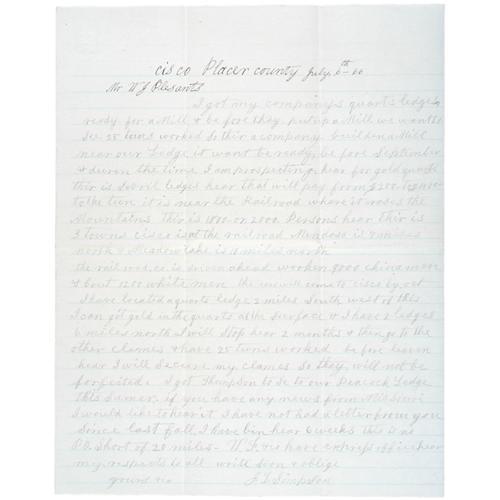 cisco Placer county July 6th - 66
Mr W J Plesants
I got my companys quarts ledges
ready for a Mill & be fore they put up a Mill we want to
Se 25 tuns worked So thir a company bulden a Mill
near our Ledge it want be ready be fore September
& duren the time I am prospecting hear for gold quarts
thir is Sevril ledges hear that will pay from $200 to
to the tun it is near the Railroad where it croses the
Mountains Thir is 1800 or 2000 Persons hear thir is
3 towns cisco is at the railroad Mendoso is miles
north & Meadow lake is miles north
the rail road co is driven ahead worken 9000 china more
& bout 1200 white men the will come to cisco by oct
I have located a quarts ledge 2 miles South west of this
I can get gold in the quarts at the Surface & I have 2 ledges
6 miles north I will Stop hear 2 months & then go to the
other clames & have 25 tuns worked be fore leaven
hear I will Secure my clames So they will not be
forfeited. I got Thompson to Se to our Peacock Ledge
this Sumer. if you have any news from Missouri
I would like to hear it I have not had a letter from you
Since last fall I have bin hear 6 weeks this is a
P.O. Short of 20 miles - W. F. & co have express office hear
my respects to all write Soon & oblige
yours &c J. L. Simpson